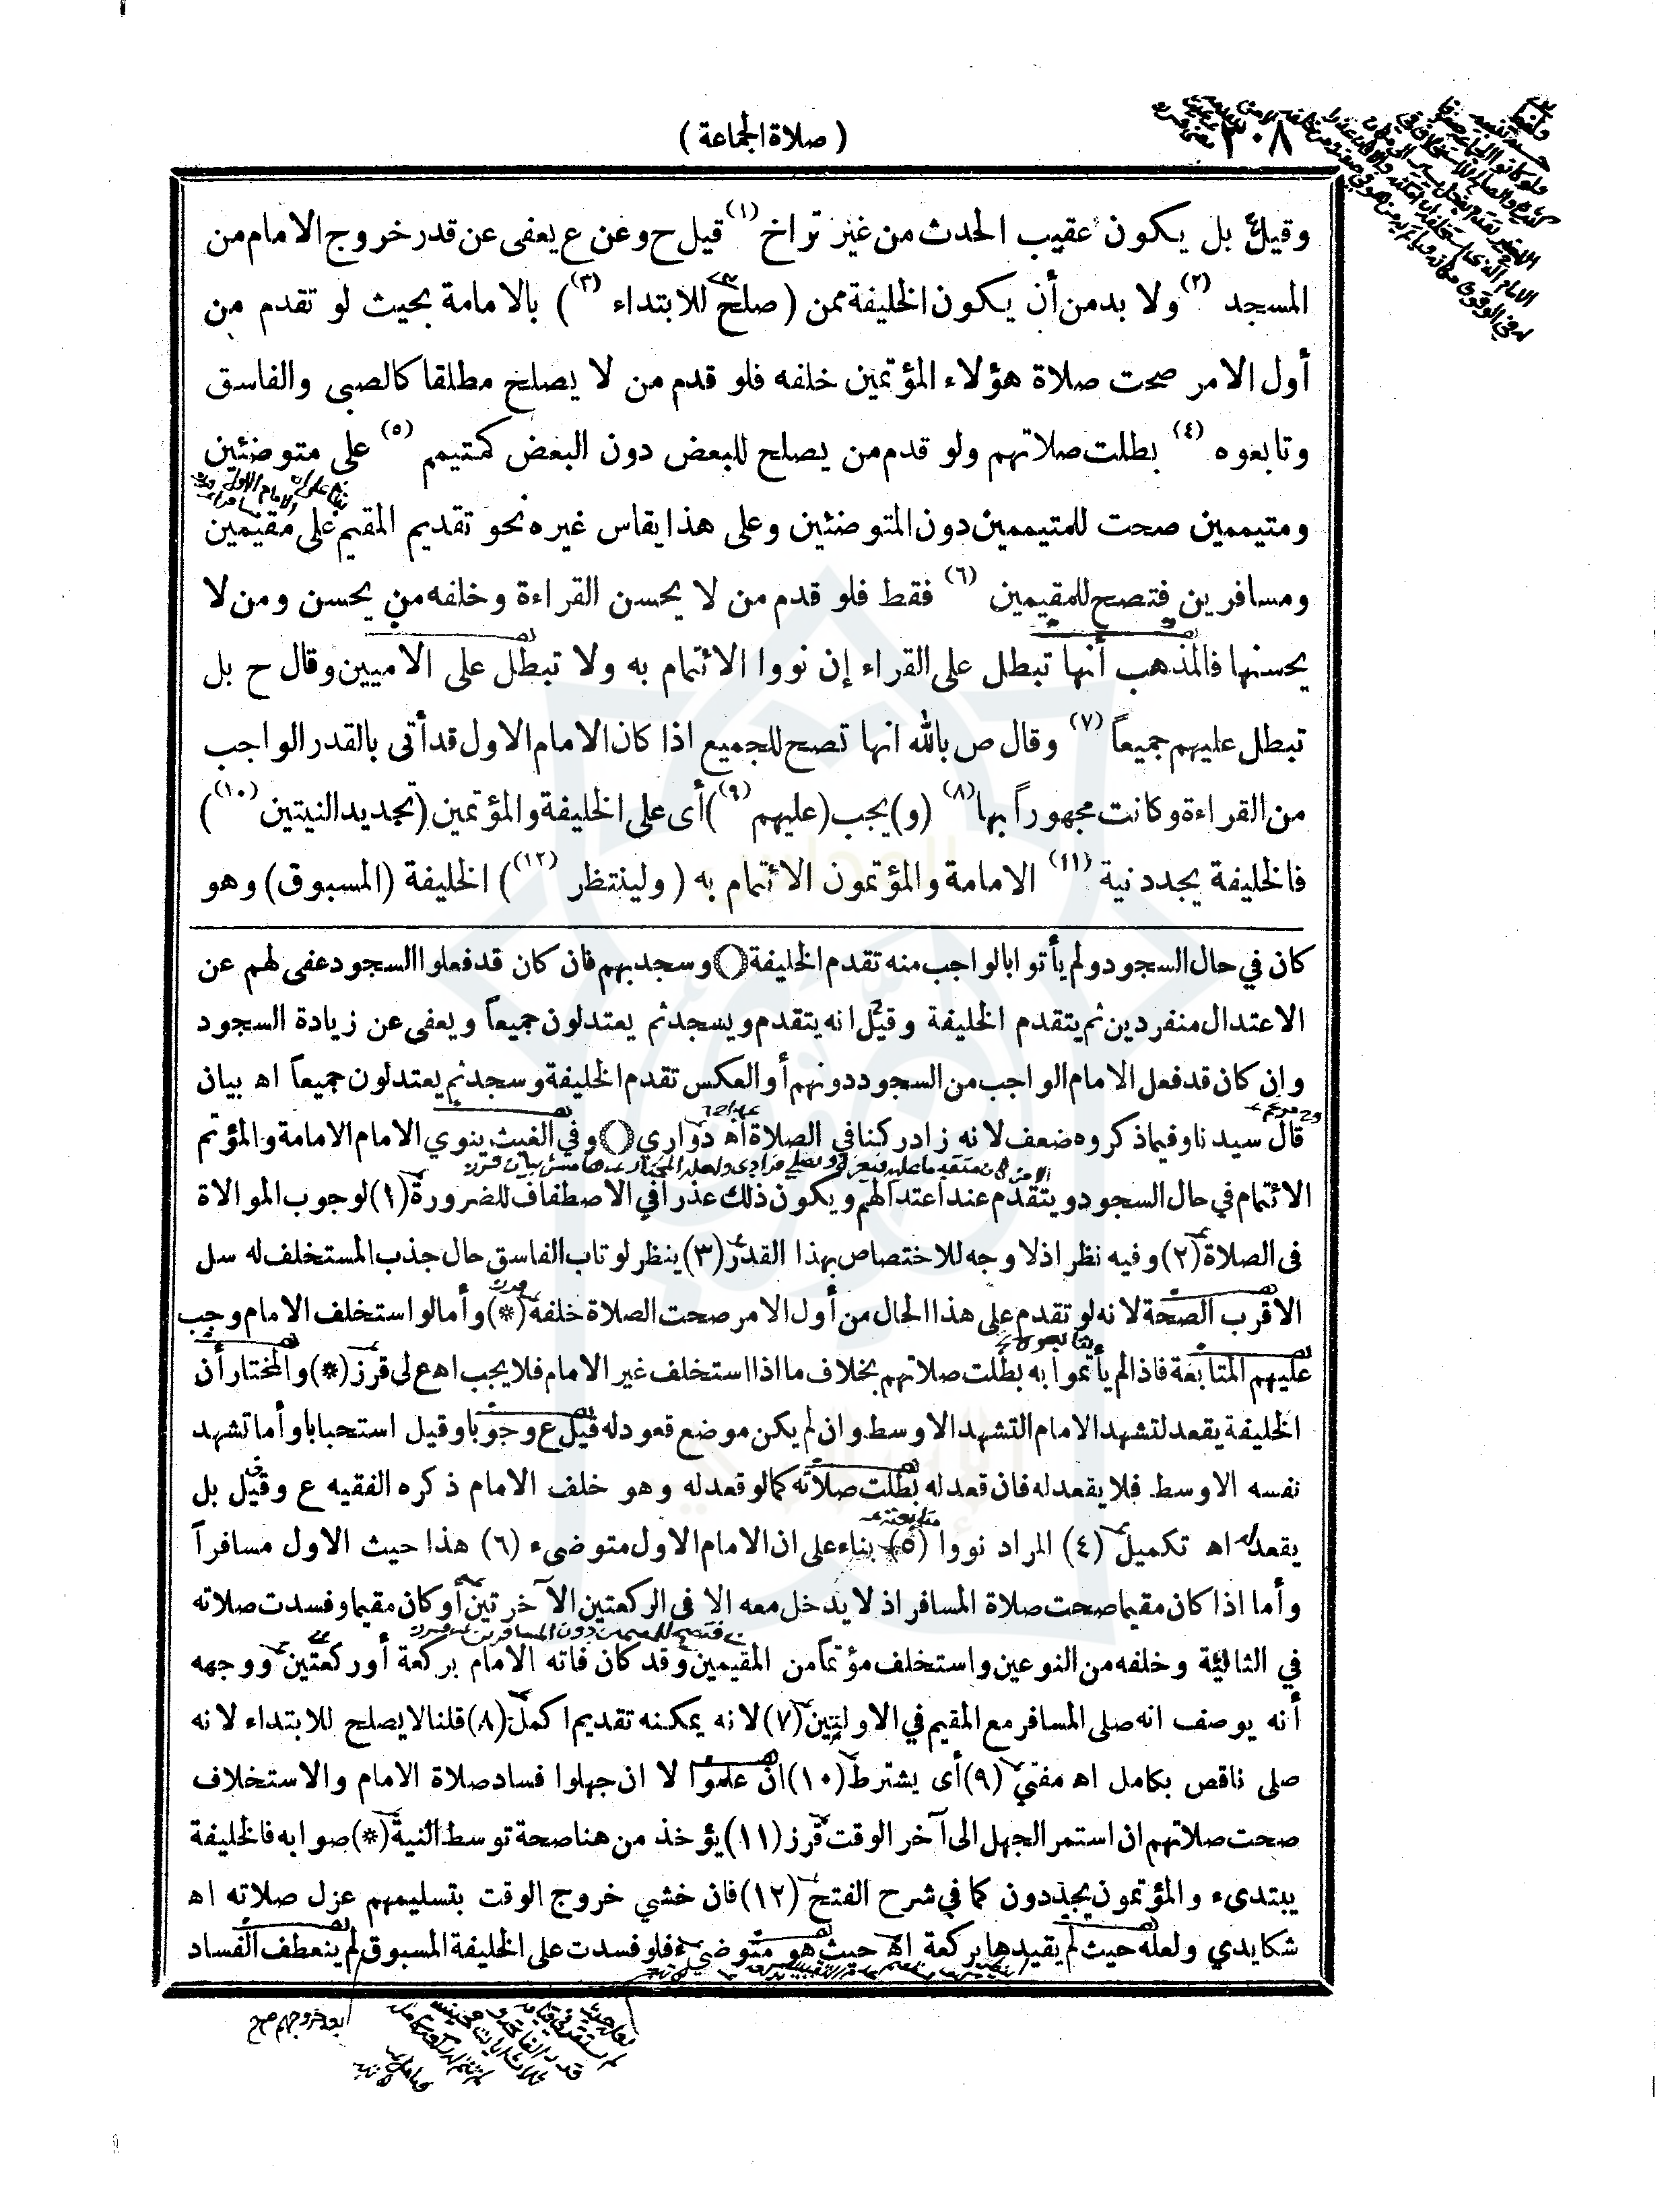 ٣٠٨
( صلاة الجماعة )
وقيل بل يكون عقيب الحدث من غير تراخ (١) قيل ح وعن ع يعفى عن قدر خروج الامام من
المسجد (٢) ولا بد من أن يكون الخليفة ممن ( صلح للابتداء (٣) ) بالامامة بحيث لو تقدم من
أول الامر صحت صلاة هؤلاء المؤتمين خلفه فلو قدم من لا يصلح مطلقا كالصبى والفاسق
وتابعوه (٤) بطلت صلاتهم ولو قدم من يصلح للبعض دون البعض كمتيمم (٥) على متوضئين
ومتيممين صحت للمتيممين دون المتوضئين وعلى هذا يقاس غيره نحو تقديم المقيم على مقيمين
ومسافرين فتصح للمقيمين (٦) فقط فلو قدم من لا يحسن القراءة وخلفه من يحسن ومن لا
يحسنها فالمذهب أنها تبطل على القراء إن نووا الائتمام به ولا تبطل على الاميين وقال ح بل
تبطل عليهم جميعاً (٧) وقال ص بالله انها تصح للجميع اذا كان الامام الاول قد أتى بالقدر الواجب
من القراءة وكانت مجهوراً بها (٨) (و) يجب (عليهم (٩) ) أى على الخليفة والمؤتمين (تجديد النيتين (١٠) )
فالخليفة يجدد نية (١١) الامامة والمؤتمون الائتمام به ( ولينتظر (١٢) ) الخليفة (المسبوق) وهو
كان في حال السجود ولم يأتوا بالواجب منه تقدم الخليفة () وسجد بهم فان كان قد فعلوا السجود عفى لهم عن
الاعتدال منفردين ثم يتقدم الخليفة وقيل انه يتقدم ويسجد ثم يعتدلون جميعاً ويعفى عن زيادة السجود
وإن كان قد فعل الامام الواجب من السجود دونهم أو العكس تقدم الخليفة وسجد ثم يعتدلون جميعاً اه بيان
قال سيدنا وفيما ذكروه ضعف لانه زاد ركنا في الصلاة اه دواري () وفي الغيث ينوي الامام الامامة والمؤتم
الائتمام في حال السجود ويتقدم عند اعتدالهم ويكون ذلك عذرا في الاصطفاف للضرورة (١) لوجوب الموالاة
فى الصلاة (٢) وفيه نظر اذ لا وجه للاختصاص بهذا القدر (٣) ينظر لو تاب الفاسق حال جذب المستخلف له سل
الاقرب الصحة لانه لو تقدم على هذا الحال من أول الامر صحت الصلاة خلفه (*) وأما لو استخلف الامام وجب
عليهم المتابعة فاذا لم يأتموا به بطلت صلاتهم بخلاف ما اذا استخلف غير الامام فلا يجب اه ع لى قرز (*) والمختار أن
الخليفة يقعد لتشهد الامام التشهد الاوسط وان لم يكن موضع قعود له قيل ع وجوبا وقيل استحبابا وأما تشهد
نفسه الاوسط فلا يقعد له فان قعد له بطلت صلاته كما لو قعد له وهو خلف الامام ذكره الفقيه ع وقيل بل
يقعد له اه تكميل (٤) المراد نووا (٥) بناء على ان الامام الاول متوضىء (٦) هذا حيث الاول مسافراً
وأما اذا كان مقيما صحت صلاة المسافر اذ لا يدخل معه الا فى الركعتين الآخرتين أو كان مقيما وفسدت صلاته
في الثالثة وخلفه من النوعين واستخلف مؤتماً من المقيمين وقد كان فاته الامام بركعة أو ركعتين ووجهه
أنه يوصف انه صلى المسافر مع المقيم في الاولتين (٧) لانه يمكنه تقديم اكمل (٨) قلنا لا يصلح للابتداء لانه
صلى ناقص بكامل اه مفتي (٩) أى يشترط (١٠) ان علموا لا ان جهلوا فساد صلاة الامام والاستخلاف
صحت صلاتهم ان استمر الجهل الى آخر الوقت قرز (١١) يؤخذ من هنا صحة توسط النية (*) صوابه فالخليفة
يبتدىء والمؤتمون يجددون كما في شرح الفتح (١٢) فان خشي خروج الوقت بتسليمهم عزل صلاته اه
شكايدي ولعله حيث لم يقيدها بركعة اه حيث هو متوضىء فلو فسدت على الخليفة المسبوق لم ينعطف الفساد
بعد خروجهم صح